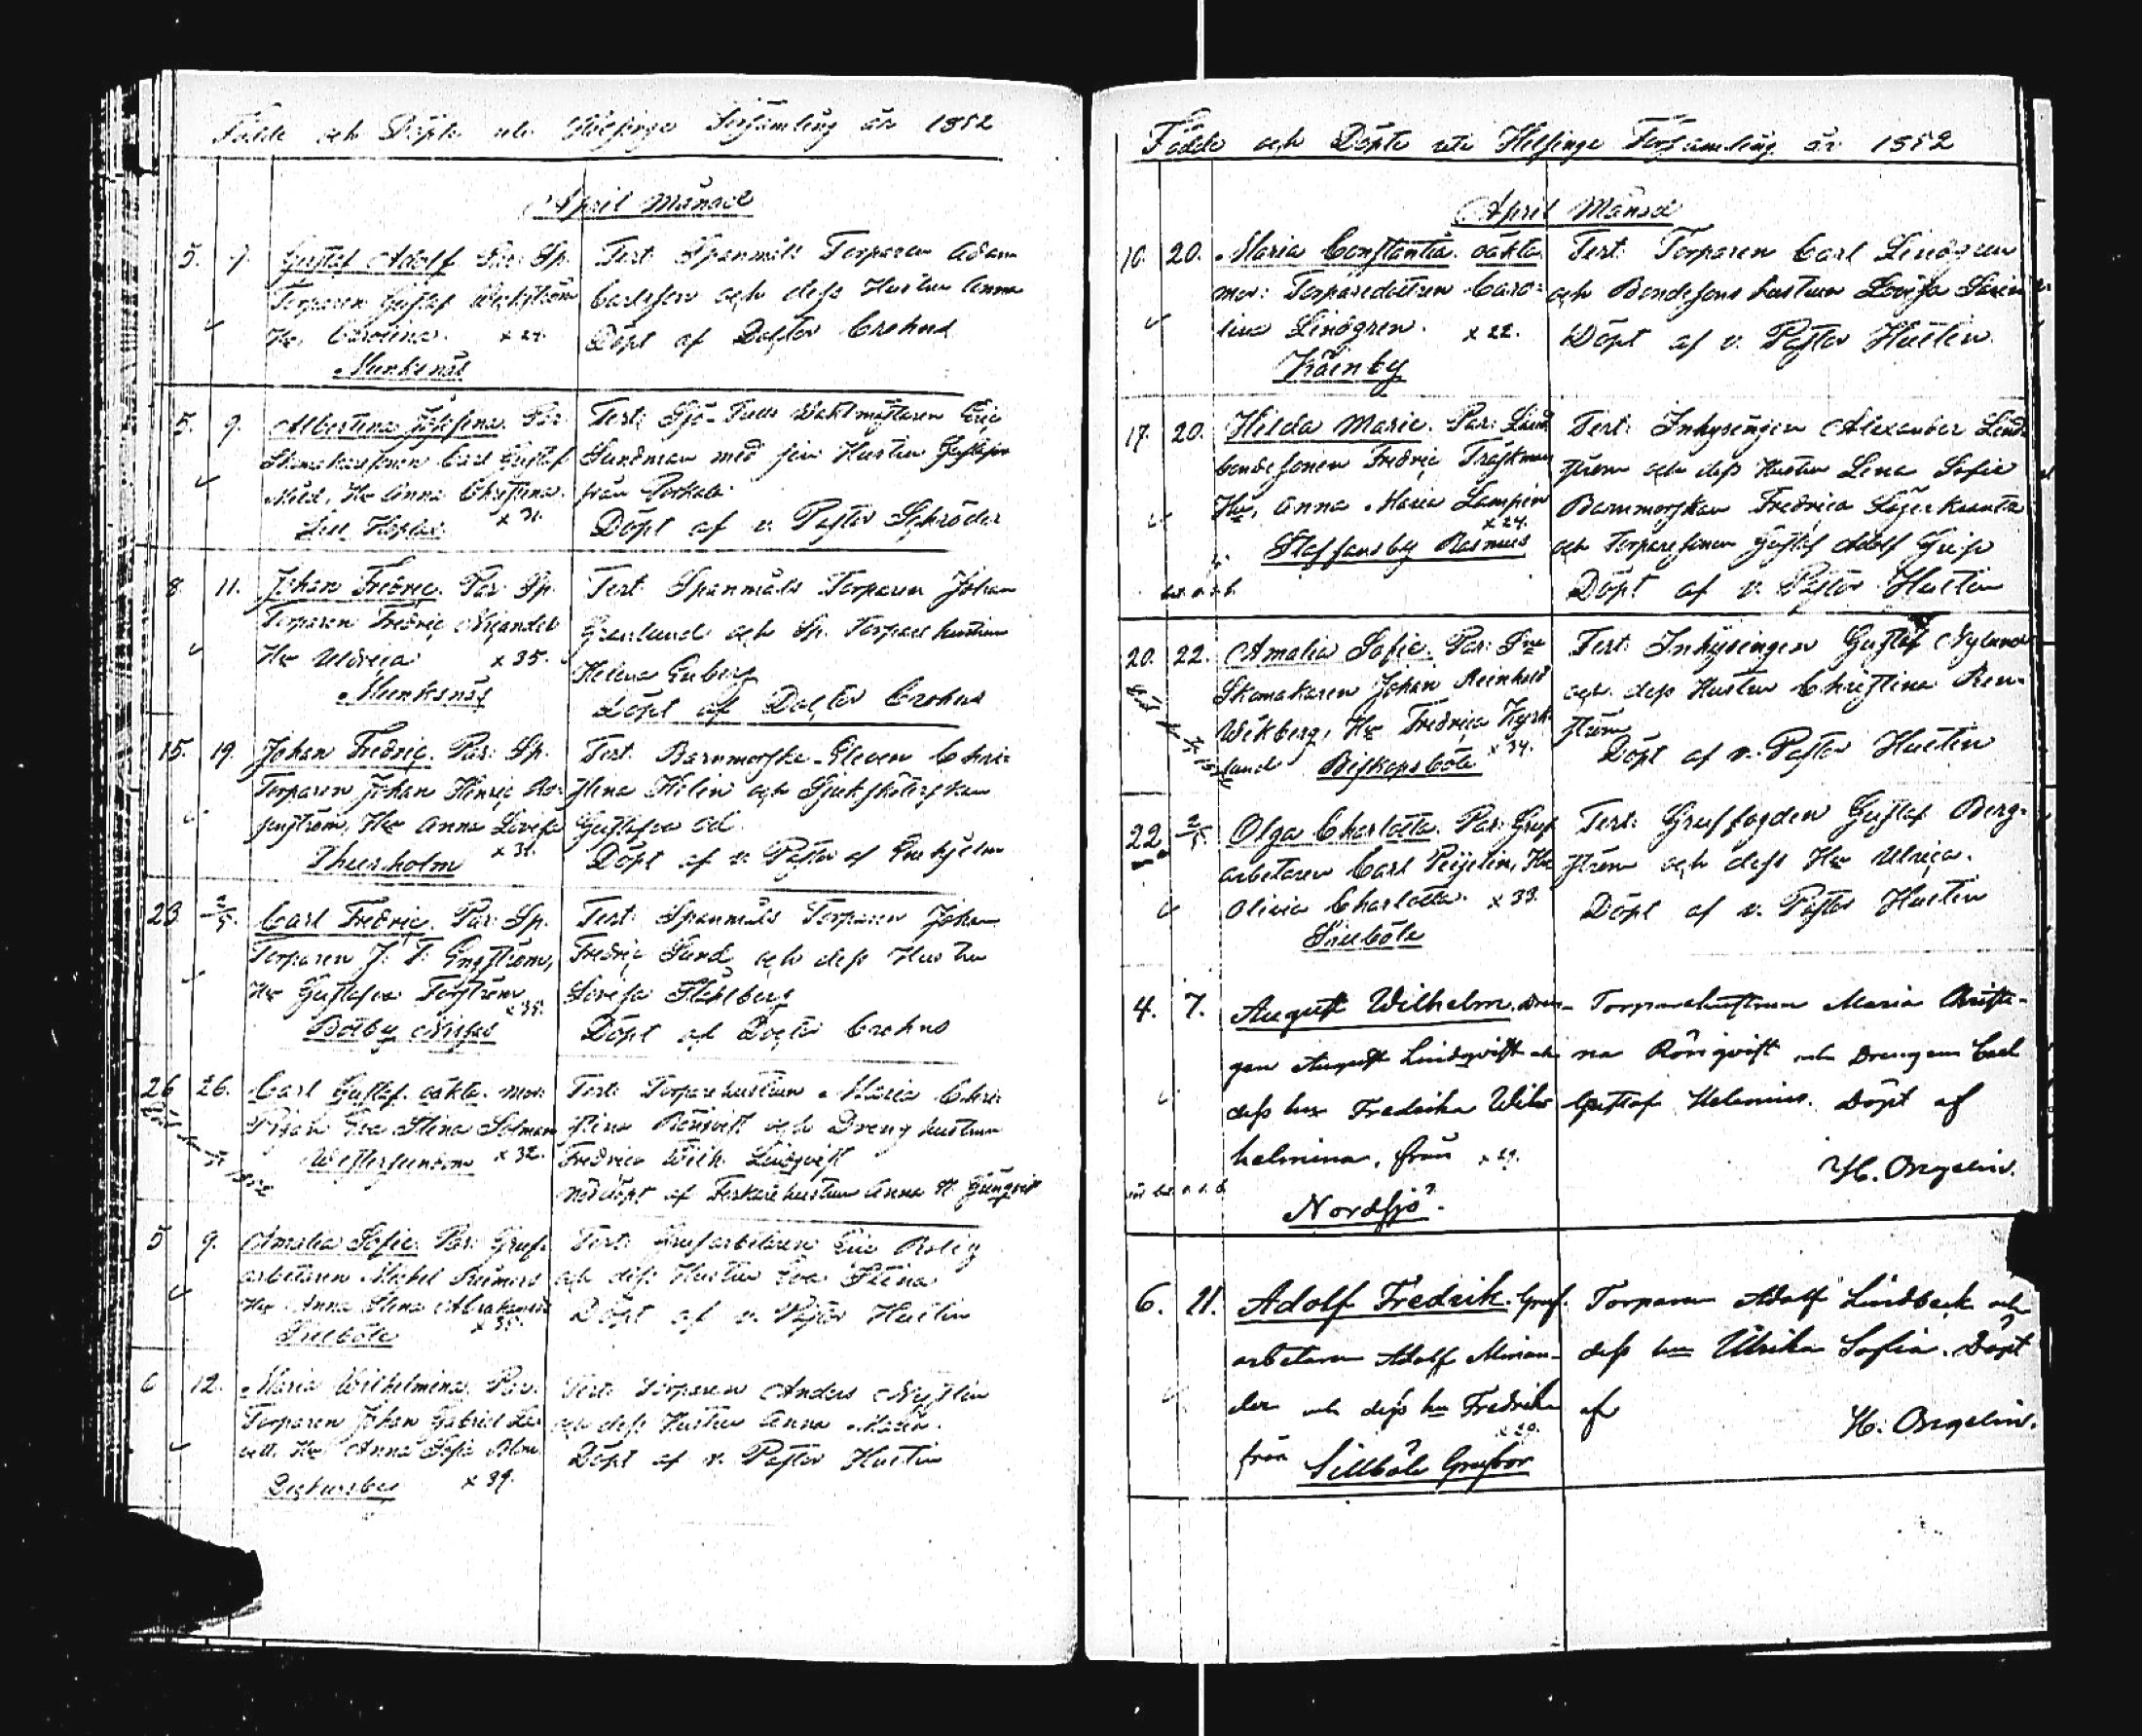 Födde och Döpte uti Helsinge Församling år 1852
April Månad
5. 7. Gustaf Adolf. Par: Sp.
Torparen Gustaf Wickström
Hu. Carolina. x 24.
Munksnäs
Test: Spanmåls Torparen Adam
Carlsson och dess Hustru Anna
Döpt af Doctor Crohns
5. 9. Albertina Josefina. Par:
Skomakaresonen Carl Gustaf
Hu Anna Christina.
x 31.
Test: Sjö-Tull Waktmästaren Eric
Sundman med sin Hustru Gustafva
från Porkala
Döpt af v. Pastor Schröder
8. 11. Johan Fredric. Par: Sp.
Torparen Fredric Nicander
Hu Ulrica x 35.
Munksnäs
Test: Spanmåls Torparen Johan
Grenlund och Sp. Torpare hustrun
Helena Enberg
Döpt af Doctor Crohns
15. 19. Johan Fredric. Par: Sp.
Torparen Johan Henric
Hu Anna Lovisa
x 31.
Thurholm
Test: Barnmorske-Eleven Chri-
stina Helin och Sjuksköterskan
Gustafva
Döpt af v. Pastor af Enehjelm
23 2/5. Carl Fredric. Par: Sp.
Torparen J: F: Engström,
Hu Gustafva Forström
x 35.
Botby Nissas
Test: Spanmåls Torparen Johan
Fredric Sund och dess Hustru
Lovisa Ståhlberg
Döpt af Doctor Crohns
26 26. Carl Gustaf. oäkta. mor:
Pigan Eva Stina Solman
x 32.
Test: Torparehustrun Maria Chri-
stina Rönqvist och Dreng hustrun
Fredrica Wilh. Lindqvist
Nöddöpt af Fiskarehustrun Anna
5 9. Amalia Sofia. Par: Gruf-
arbetaren Michel
Hu Anna Stina
x 35.
Sillböle
Test: Grufarbetaren Eric Rolig
och dess Hustru Eva Stina
Döpt af v. Pastor Hustin
6 12. Maria Wilhelmina. Par:
Torparen Johan Gabriel
Hu Anna Sofia
Dickursby x 39.
Test: Torparen Anders Nyström
och dess Hustru Anna Maria.
Döpt af v. Pastor Hustin
Födde och Döpte uti Helsinge Församling år 1852
April Månad
10. 20. Maria Constantia. oäkta.
mor: Torparedottren Caro-
lina Lindgren. x 22.
Kårnby
Test: Torparen Carl Lindgren
och Bondesons hustrun Lovisa
Döpt af v. Pastor Hustin
17. 20. Hilda Maria. Par: Land
bonde sonen Fredric Träskman
Hu, Anna Maria Lampin
x 24.
Staffansby Rasmus
Test: Inhysingen Alexander Lind-
ström och dess Hustru Lena Sofia
Barnmorskan Fredrica
och Torparesonen Gustaf Adolf
Döpt af v. Pastor Hustin
20. 22. Amalia Sofia. Par:
Skomakaren Johan Reinhold
Wikberg, Hu Fredrica Kyrk-
lund Biskopsböle x 34.
Test: Inhysingen Gustaf Nylund
och dess Hustru Christina Ren-
ström
Döpt af v. Pastor Hustin
22. 2/5. Olga Charlotta. Par: Gruf
arbetaren Carl Hu
Olivia Charlotta. x 33.
Sillböle
Test: Gruffogden Gustaf Berg-
ström och dess Hu Ulrica.
Döpt af v. Pastor Hustin
4. 7. August Wilhelm, Dren-
gen August Lindqvist och
dess hu Fredrika Wil-
helmina, från x 29.
Nordsjö.
Torparehustrun Maria Christi-
na Rönqvist och Drengen Carl
Gustaf Helenius. Döpt af
H. Ongelin.
6. 21. Adolf Fredrik. Gruf-
arbetaren Adolf Miran-
der och dess hu Fredrika
x 29.
från Sillböle Grufvor
Torparen Adolf Lindbeck och
dess hu Ulrika Sofia. Döpt
af H: Ongelin.